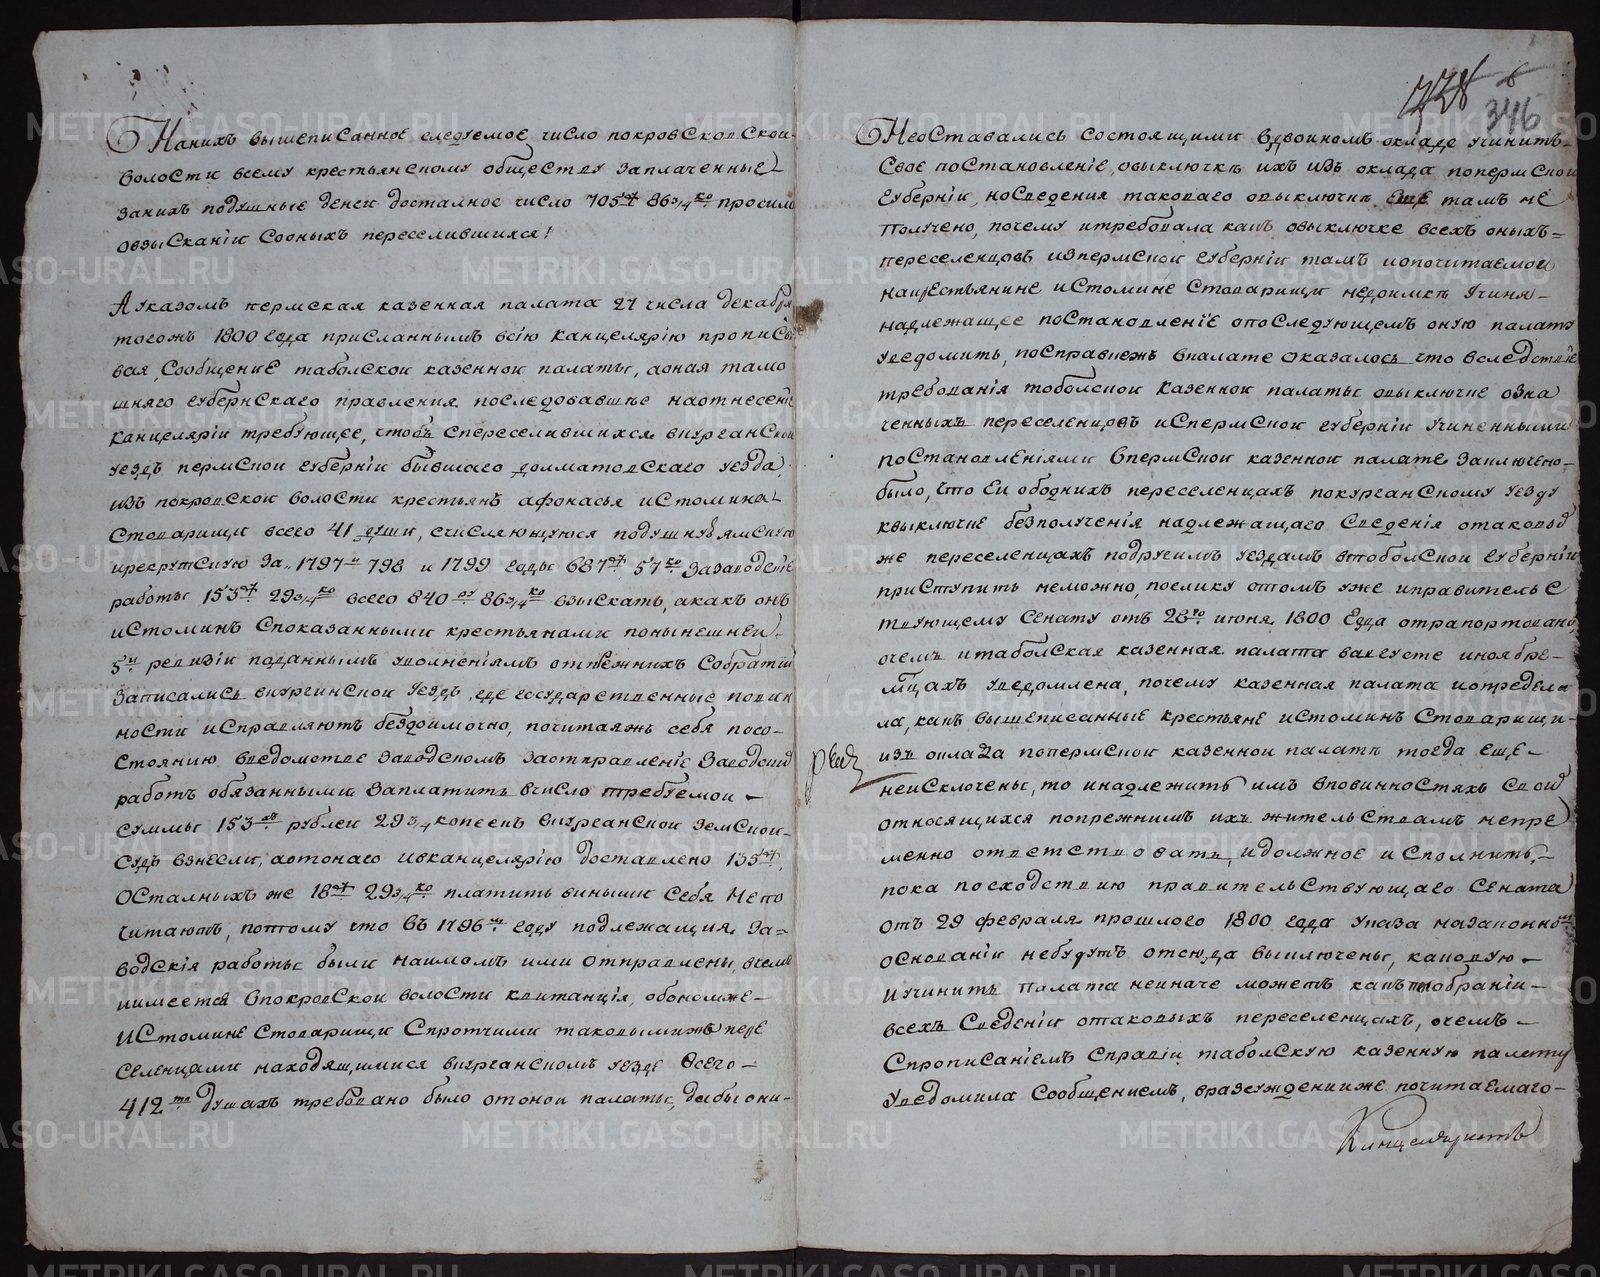 Нанихъ вышеписанное следуемое число покровскои
волости всему крестьянскому обществу заплаченные
занихъ подушные денги досталное число 705 ру 86 3/4 ко просило
овзысканiи Сооныхъ переселившихся!
Ауказомъ пермская казенная палата 27 числа декабря
тогожъ 1800 года присланнымъ всiю канцелярiю прописы
вая, Сообщение таболскои казеннои палаты, аоная тамо
шняго губернскаго правления последовавшее наотнесенiе
канцелярiи требующее, чтобъ Спереселившихся вкурганскои
уездъ пермскои губернiи бывшаго долматовскаго уезда
изъ покровскои волости крестьянъ афонасья истомина
Стоварищи всего 41 души, счисляющуюся подушную ямскую
ирекрутскую За 1797 798 и 1799 годы 687 ру 57 ко Зазаводские
работы 153 ру 29 3/4 ко всего 840 ру 86 3/4 ко взыскать, акакъ онъ
истоминъ Споказанными крестьянами понынешнеи
5и ревизiи поданнымъ уволненiямъ отпрежнихъ Собратiи
Записались вкургинскои уездъ, где государственные повин
ности исправляютъ бездоимочно, почитаяжъ себя посо
стоянию введомстве Заводскомъ Заотправленiе Заводских
работъ обязанными заплатить вчисло требуемои
суммы 153 ру рублеи 29 3/4 копеекъ вкурганскои земскои
судъ взнесли, аотонаго ивканцелярiю доставлено 135 ру
Осталныхъ же 18 ру 29 3/4 ко платить виными Себя непо
читаютъ, потому что въ 1796 м году подлежащия за
водскiя работы были наимомъ ими отправлены, вчемъ
иимеется впокровскои волости квитанцiя, обономже
Истомине Стоварищи Спротчими таковымижъ пере
селенцами находящимися вкурганскомъ уезде всего
412 ти душахъ требовано было отонои палаты, дабы они
338 6
346
Неоставались состоящими вдвоиномъ окладе учинить
Свое постановленiе, овыключкъ ихъ изъ оклада попермскои
Губернiи, носведения таковаго овыключкъ еще тамъ не
Получено, почему итребовала какъ овыключке всехъ оныхъ
переселенцовъ изпермскои губернiи тамъ ипочитаемои
накрестьянине истомине Стоварищи недоимкъ учиня
надлежащее постановленiе опоследующемъ оную палату
уведомить, посправкежъ впалате оказалось что вследствiе
требованiя тоболскои казеннои палаты овыключке озна
ченныхъ переселенцовъ испермскои губернiи учиненными
постановленiями впермскои казеннои палате заключено
было, что еи ободнихъ переселенцахъ покурганскому уезду
квыключке безполученiя надлежащаго Сведенiя отаковых
же переселенцахъ подругимъ уездамъ втоболскои губернiи
приступить неможно, поелику отомъ уже иправительс
твующему Сенату отъ 28 го июня 1800 года отрапортовано,
очемъ итаболская казенная палата вавгусте иноябре
мцахъ уведомлена, почему казенная палата иопредели
ла, какъ вышеписанные крестьяне истоминъ Стоварищи
изъ оклада попермскои казеннои палатъ тогда еще
неисключены, то инадлежитъ имъ вповинностяхъ Своих
относящихся попрежнимъ ихъ жительствамъ непре
менно ответствовать, идолжное исполнить,
пока посходствию правительствующаго Сената
отъ 29 февраля прошлого 1800 года указа назаконном
основанiи небудутъ отсюда выключены, каковую
иучинить палата неиначе можетъ какъ пособранiи
всехъ Сведенiи отаковыхъ переселенцахъ, очемъ
Спрописанiемъ Справки таболскую казенную палату
Уведомила Сообщениемъ, вразсужденииже почитаемаго
Канцеляристъ